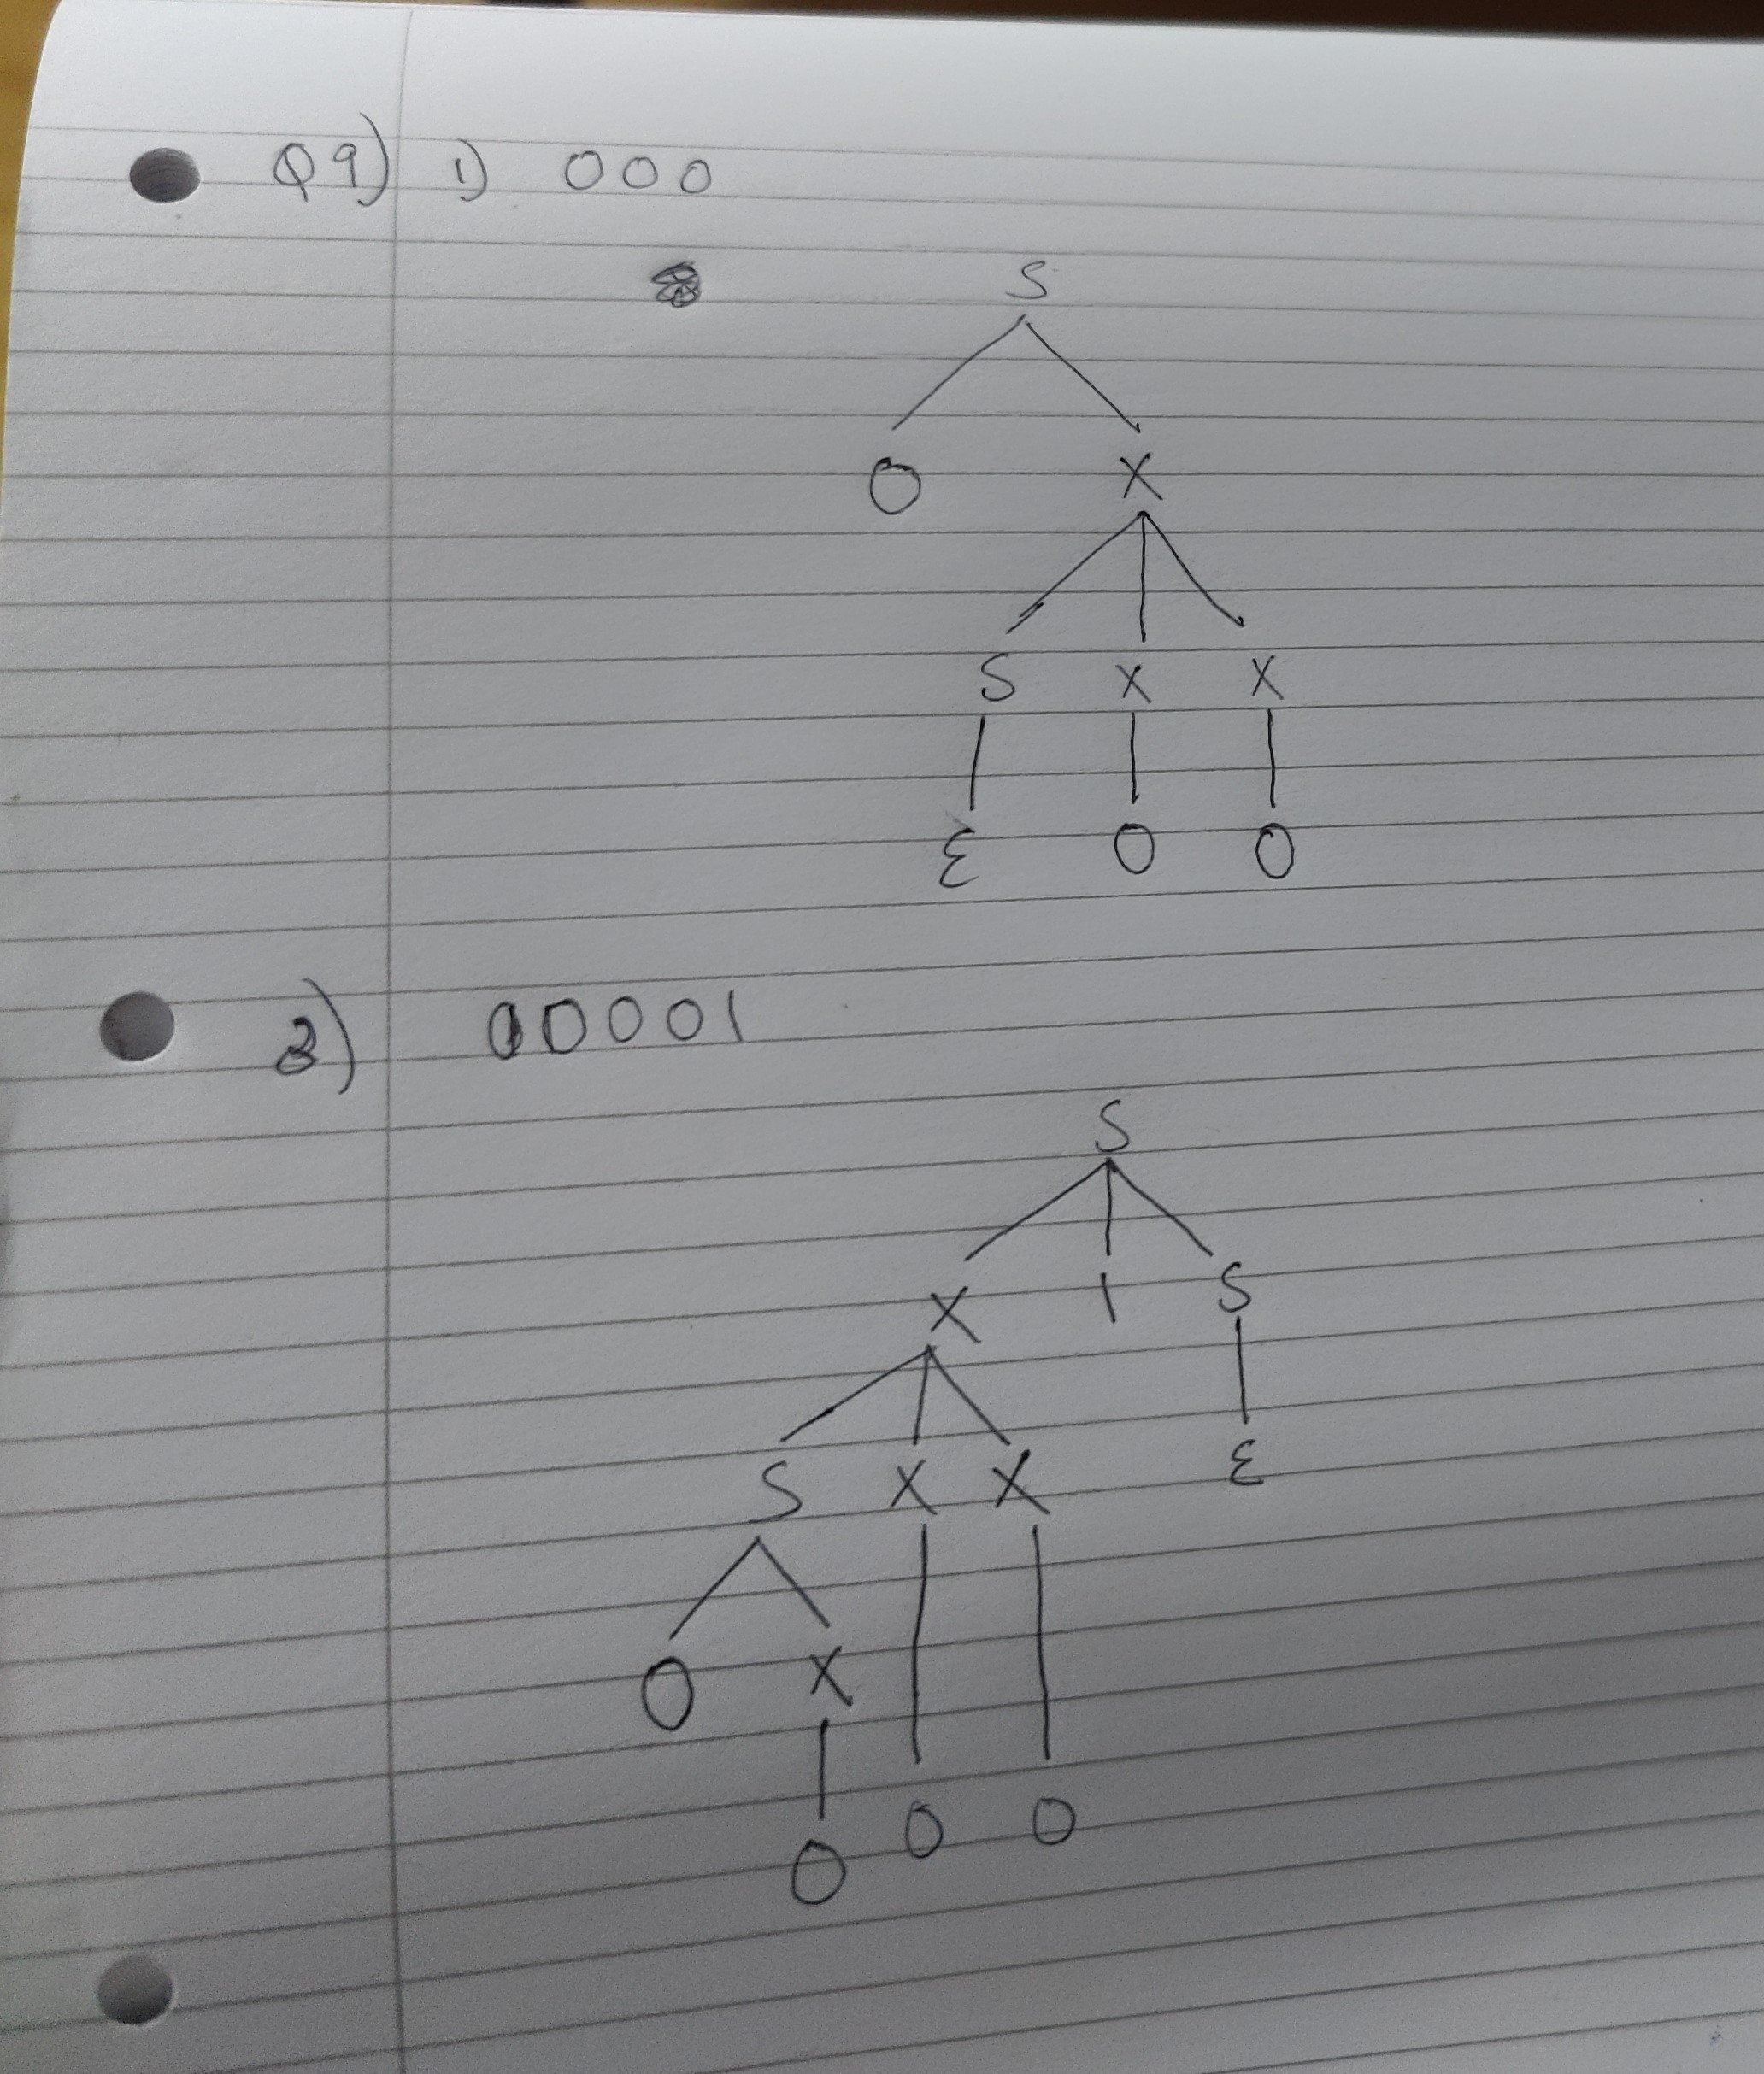 Q9) 1) 000
S
0 X
S X X
ε 0 0
2) 00001
S
X 1 S
S X X ε
0 X
0 0 0